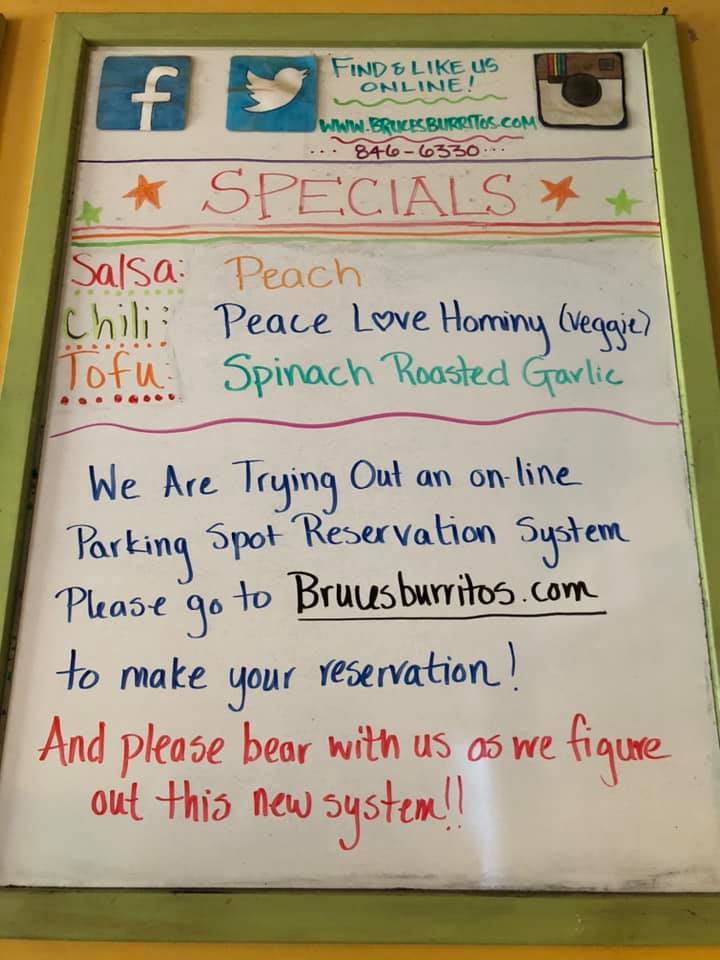 f
FIND & LIKE US
ONLINE!
WWW.BRUCESBURRITOS.COM
... 846-6330...
SPECIALS
Salsa: Peach
Chili: Peace Love Hominy (veggie)
Tofu: Spinach Roasted Garlic
We Are Trying Out an on-line
Parking Spot Reservation System
Please go to Brucesburritos.com
to make your reservation!
And please bear with us as we figure
out this new system!!